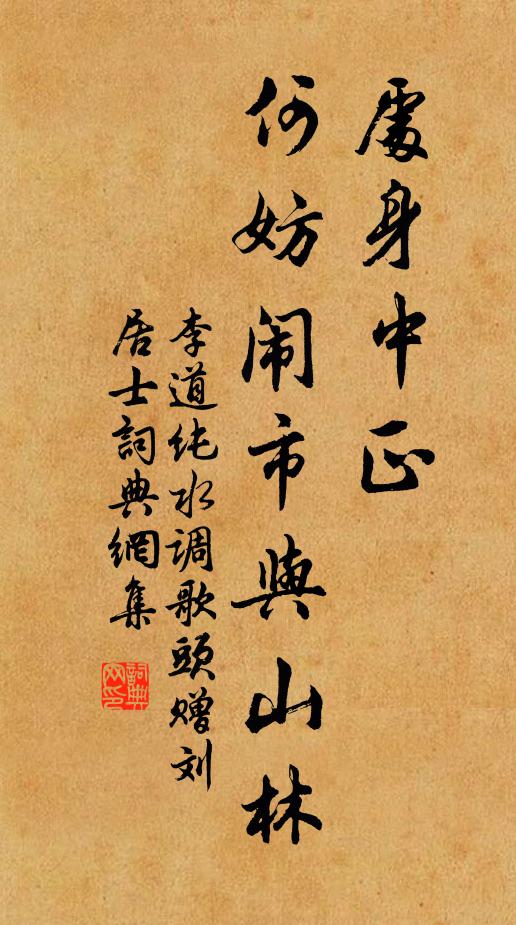 處身中正
何妨闹市與山林
李道纯水调歌頭赠刘
居士詞典網集
詞典
网印